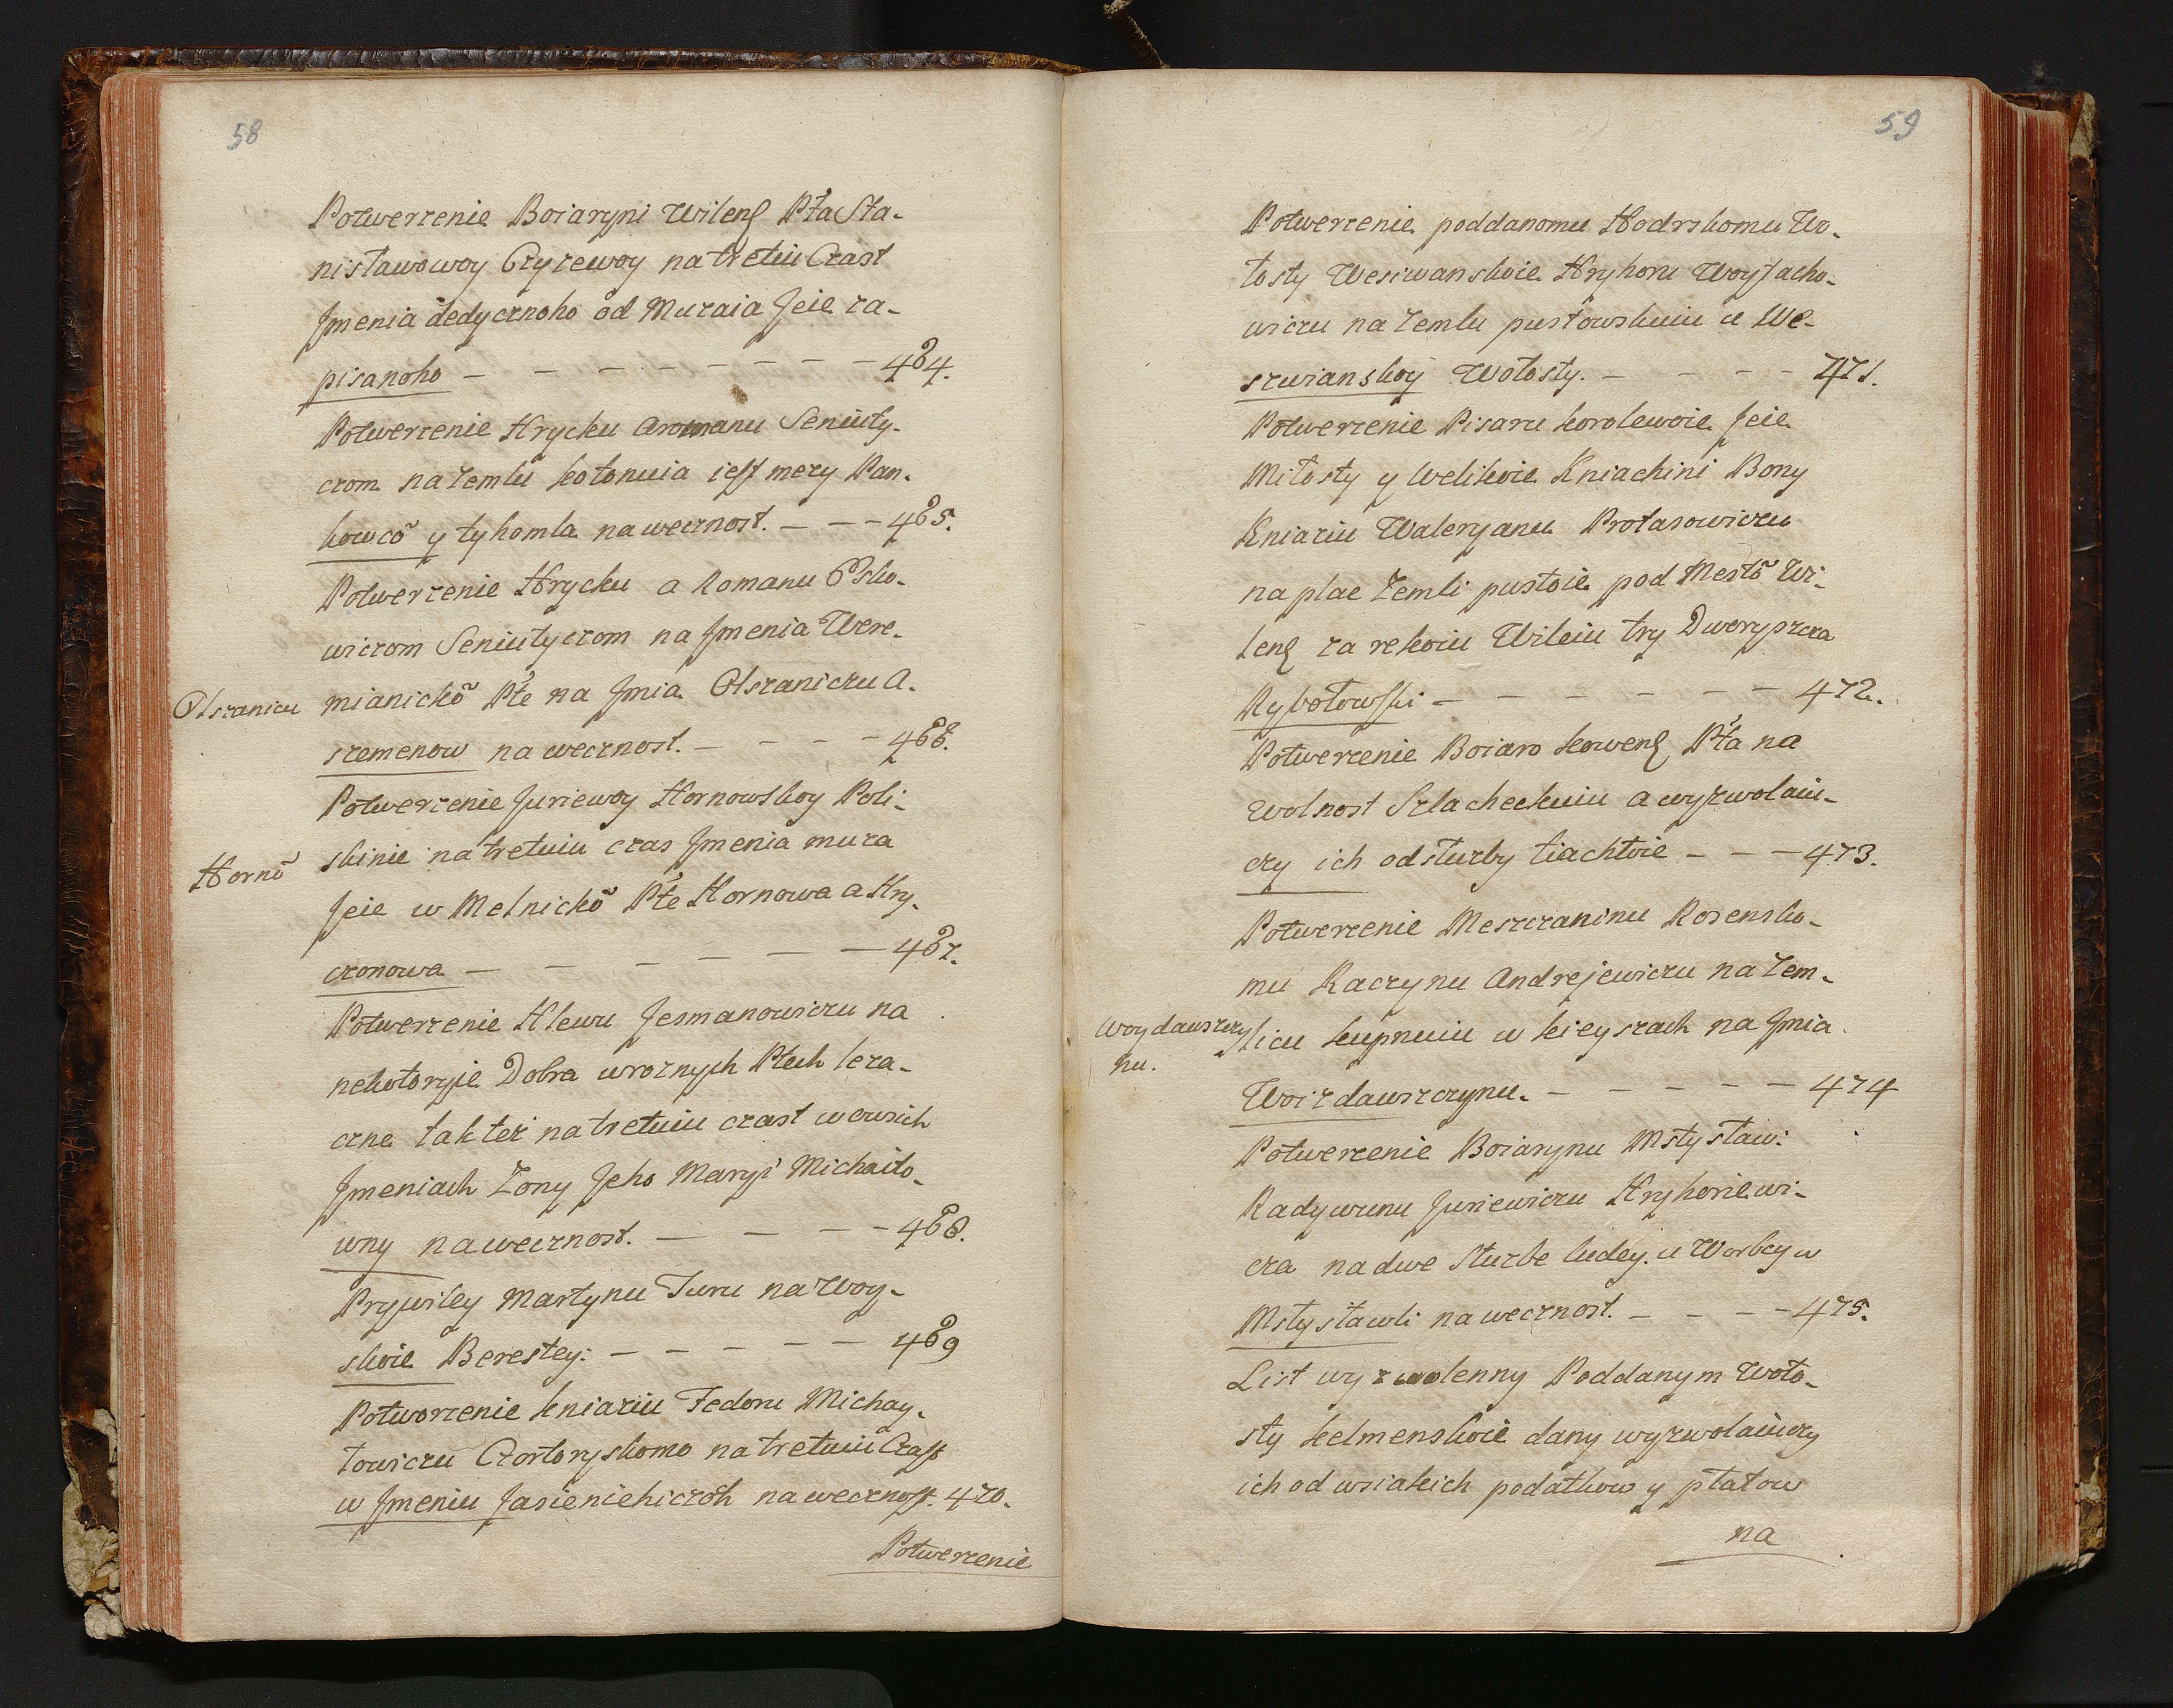 58
Potwerzenie Boiaryni Wilenſ Pťa Sta-
nisławowoy Czyzewoy na tretiu Czast
Jmenia dedycznoho od Muzaia Jeie za-
pisanoho — — — — — — — — 464.
Potwerzenie Hrycku Aromanu Seniuty-
czom na Zemlu kołonuia iest mezy Pan-
kowcõ y tyhomla na wecznost. — — — 465.
Potwerzenie Hrycku a Romanu Osko-
wiczom Seniutyczom na Jmenia Were-
Olszanicu
mianickõ Pťe na Jmia Olszaniczu A-
szemenow na wecznost. — — — — 466.
Potwerzenie Juriewoy Hornowskoy Poli-
skinie na tretuiu czas Jmenia muza
Hornõ
Jeie w Melnickõ Pťe Hornowa a Hry-
czonowa — — — — — — — 467.
Potwerzenie Hlewu Jesmanowiczu na
nekotoryje Dobra uroznych Ptech leza-
czne takteż na tretuiu czast wewsich
Jmeniach Zony Jeho Maryi Michaiło-
wny na wecznost. — — — — 468.
Prywiley Martynu Turu na Woy-
skoie Berestey: — — — — — 469
Potworzenie kniaziu Fedoru Michay-
łowiczu Czortoryskomo na tretuiu Czast
w Jmeniu Jasieniehiczõh na wecznost. 470.
Potwerzenie
59
Potwerzenie poddanomu Hodrskomu Wo-
łosty Wesiwanskoie Hryhoru Woyjacho-
wiczu na Zemlu pustowskuiu u We-
szwianskoy Wołosty. — — — — 471.
Potwerzenie Pisaru korolewoie Jeie
Miłosty y Welikoie Kniachini Bony
Kniaziu Waleryanu Protasowiczu
na plac Zemli pustoie pod Mestõ Wi-
lenſ za rekoiu Wileiu try Dworyszcza
Rybołowski — — — — — — — 472.
Potwerzenie Boiaro kowenſ Pťa na
Wolnost Szlacheckuiu a wyzwolaiu-
czy ich od służby tiachłoie — — — 473.
Potwerzenie Meszczaninu Rosensko-
mu Kaczynu Andrejewiczu na Zem-
Woydauszczy
nu.
licu kupnuiu w kieyszach na Jmia
Woizdauszczynu. — — — — — — 474
Potwerzenie Boiarynu Mstysław:
Radywunu Juriewiczu Hryhoriewi-
cza na dwe Służbe ludey u Worbey w
Mstysławli na wecznost. — — — — 475.
List wyzwolenny Poddanym Woło-
sty kelmenskoie dany wyzwolaiuczy
ich od wsiakich podatkow y płatow
na